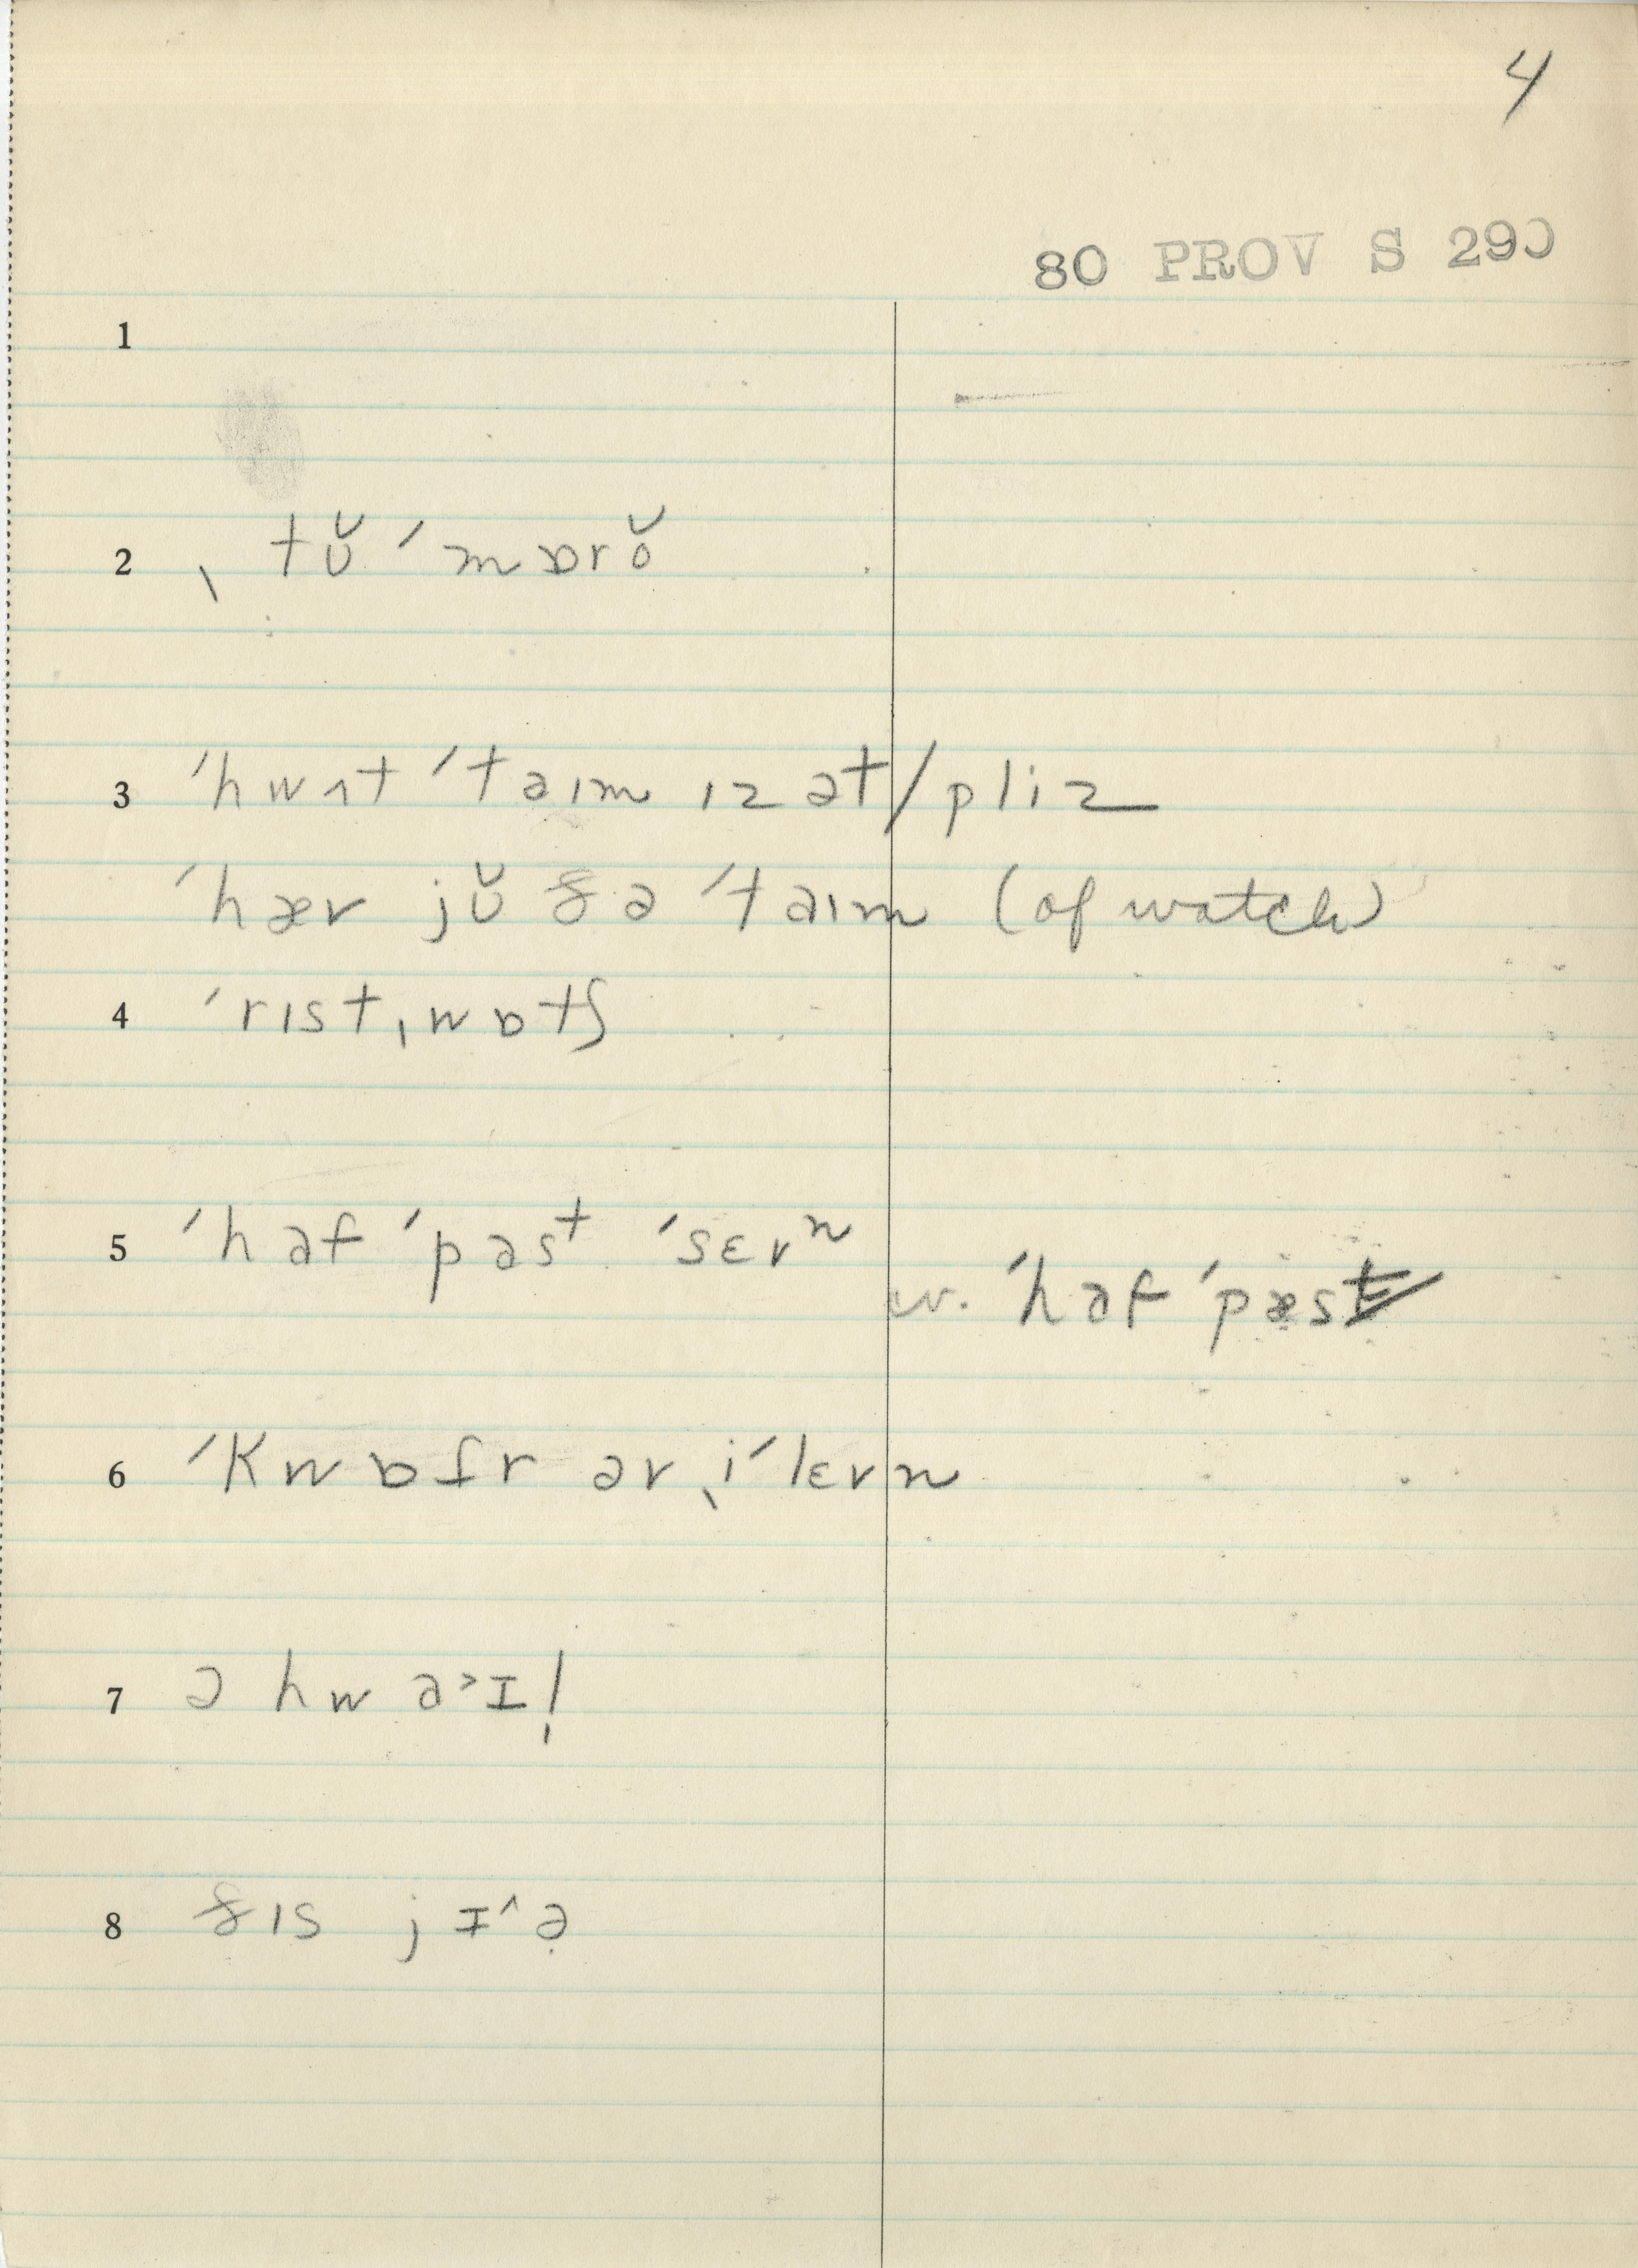 4
80 PROV S 290
1
2 ˌtʊ̆ˈmɒrŏ
3 ˈhwʌt ˈtaɪm ɪz at/pliz
ˈhæv jʊ̆ ðə ˈtaɪm (of watch)
4 ˈrɪstˌwɒtʃ
5 ˈhaf ˈpasᵗ ˈsɛvⁿ
w. ˈhaf ˈpæs
6 ˈkwɒɾr əv ˌiˈlɛvn
7 ə hw aᵊɪ!
8 ðɪs jɪ^ə